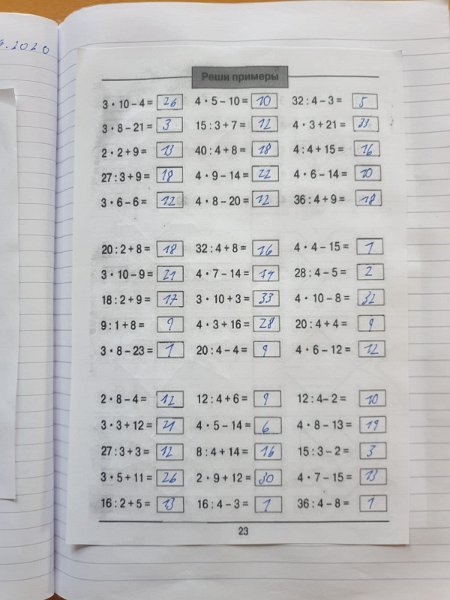 9.2020
Реши примеры
3 · 10 – 4 = 26 4 · 5 – 10 = 10 32 : 4 – 3 = 5
3 · 8 – 21 = 3 15 : 3 + 7 = 12 4 · 3 + 21 = 33
2 · 2 + 9 = 13 40 : 4 + 8 = 18 4 : 4 + 15 = 16
27 : 3 + 9 = 18 4 · 9 – 14 = 22 4 · 6 – 14 = 10
3 · 6 – 6 = 12 4 · 8 – 20 = 12 36 : 4 + 9 = 18
20 : 2 + 8 = 18 32 : 4 + 8 = 16 4 · 4 – 15 = 1
3 · 10 – 9 = 21 4 · 7 – 14 = 14 28 : 4 – 5 = 2
18 : 2 + 9 = 17 3 · 10 + 3 = 33 4 · 10 – 8 = 32
9 : 1 + 8 = 9 4 · 3 + 16 = 28 20 : 4 + 4 = 9
3 · 8 – 23 = 1 20 : 4 – 4 = 9 4 · 6 – 12 = 12
2 · 8 – 4 = 12 12 : 4 + 6 = 9 12 : 4 – 2 = 10
3 · 3 + 12 = 21 4 · 5 – 14 = 6 4 · 8 – 13 = 19
27 : 3 + 3 = 12 8 : 4 + 14 = 16 15 : 3 – 2 = 3
3 · 5 + 11 = 26 2 · 9 + 12 = 30 4 · 7 – 15 = 13
16 : 2 + 5 = 13 16 : 4 – 3 = 1 36 : 4 – 8 = 1
23